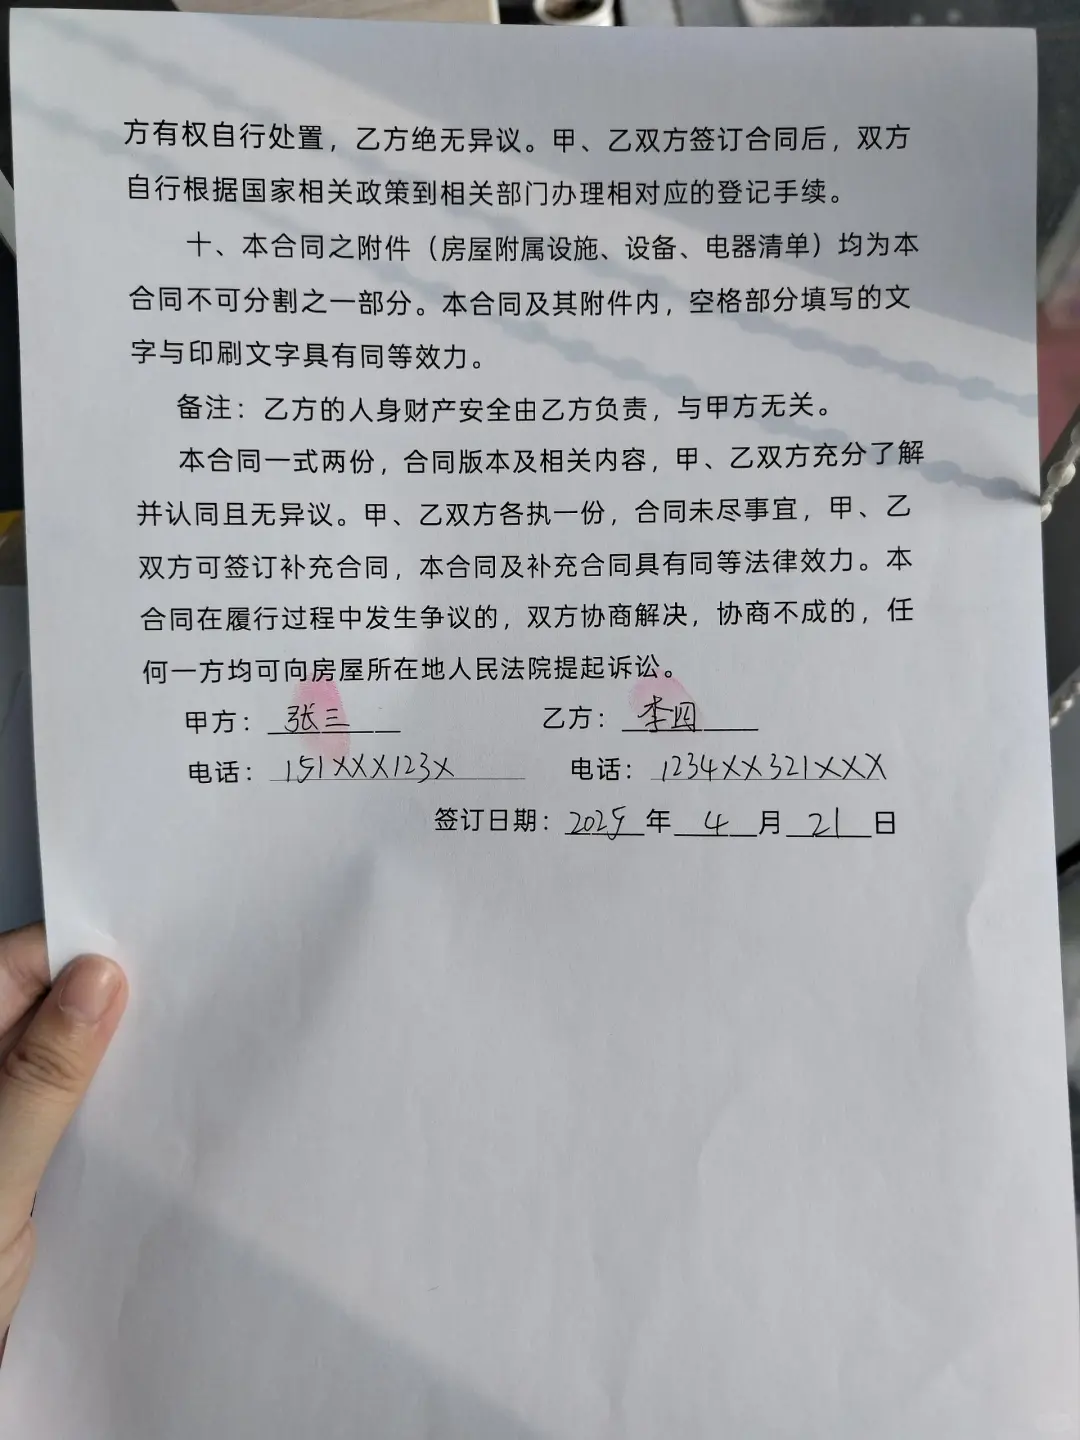 方有权自行处置，乙方绝无异议。甲、乙双方签订合同后，双方
自行根据国家相关政策到相关部门办理相对应的登记手续。
十、本合同之附件（房屋附属设施、设备、电器清单）均为本
合同不可分割之一部分。本合同及其附件内，空格部分填写的文
字与印刷文字具有同等效力。
备注：乙方的人身财产安全由乙方负责，与甲方无关。
本合同一式两份，合同版本及相关内容，甲、乙双方充分了解
并认同且无异议。甲、乙双方各执一份，合同未尽事宜，甲、乙
双方可签订补充合同，本合同及补充合同具有同等法律效力。本
合同在履行过程中发生争议的，双方协商解决，协商不成的，任
何一方均可向房屋所在地人民法院提起诉讼。
甲方：张三 乙方：李四
电话：151XXX123X 电话：1234XX321XXX
签订日期：2025年4月21日